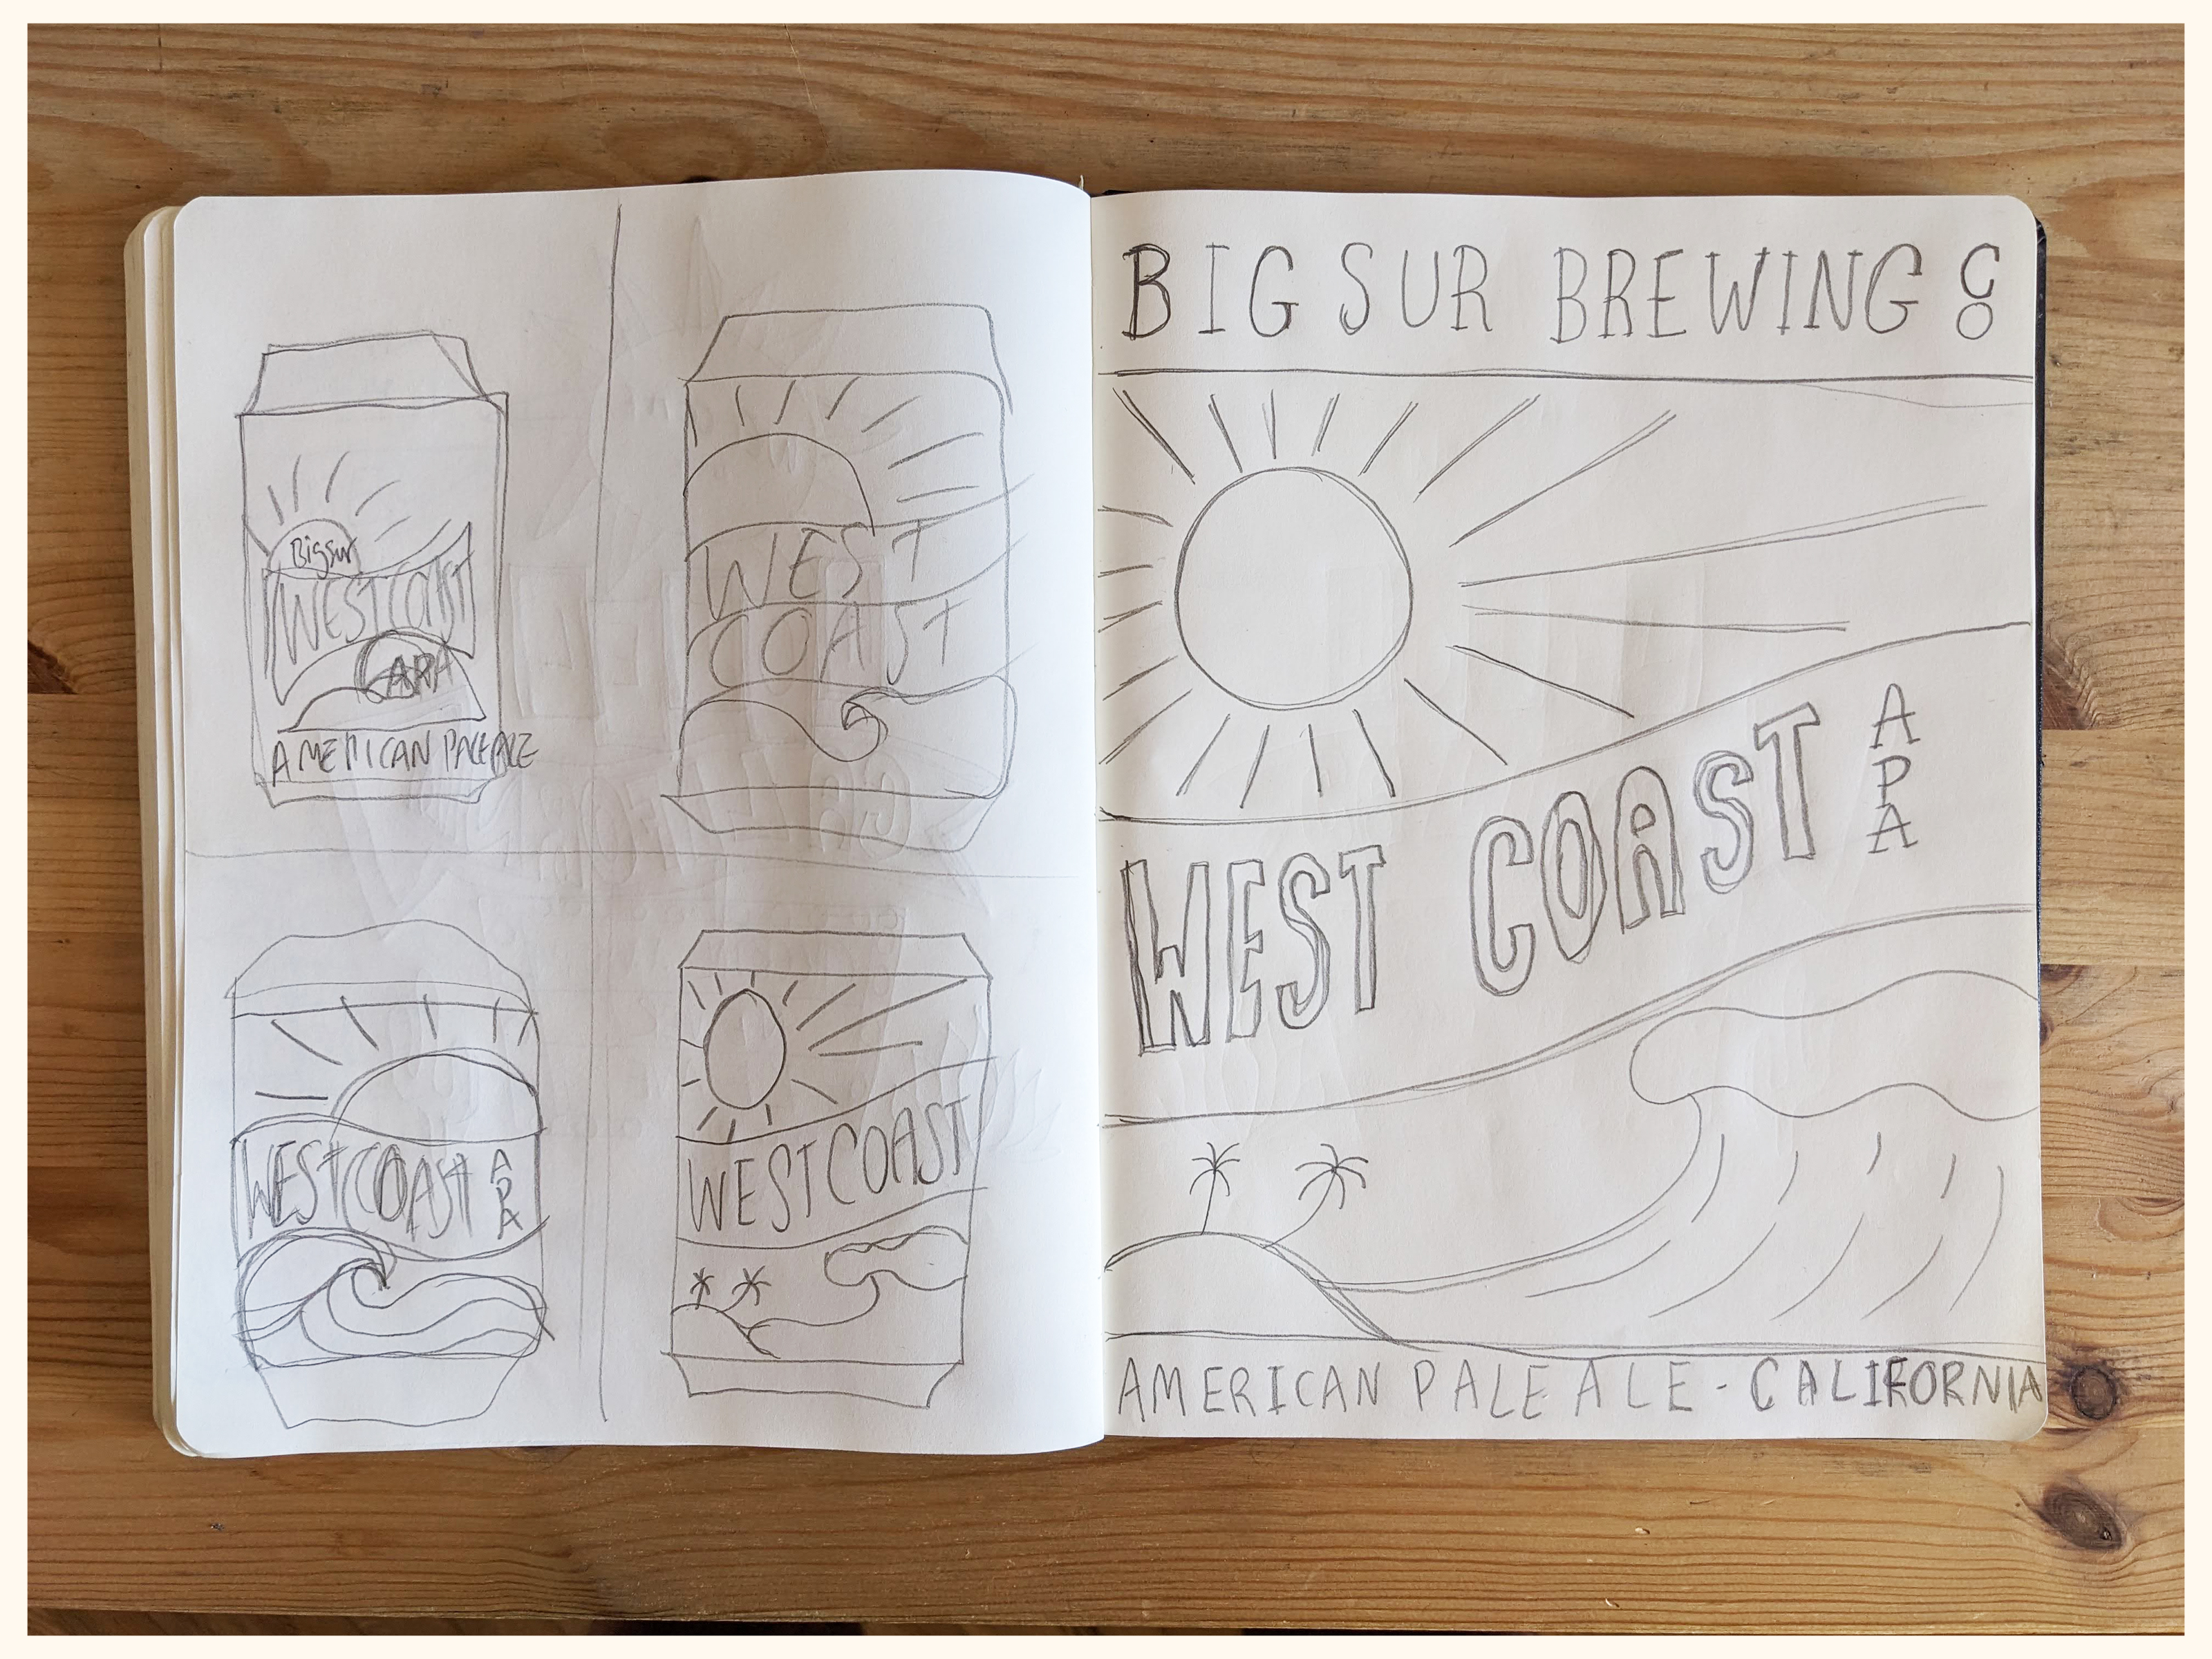 Bigsur
WESTCOAST
APA
AMERICAN PALE ALE
WEST
COAST
WESTCOAST APA
WESTCOAST
BIG SUR BREWING CO
WEST COAST APA
AMERICAN PALE ALE - CALIFORNIA